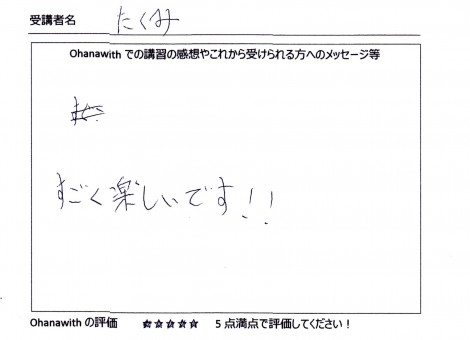 受講者名 たくみ
Ohanawith での講習の感想やこれから受けられる方へのメッセージ等
すごく楽しいです!!
Ohanawith の評価 ★★★★★ 5点満点で評価してください!